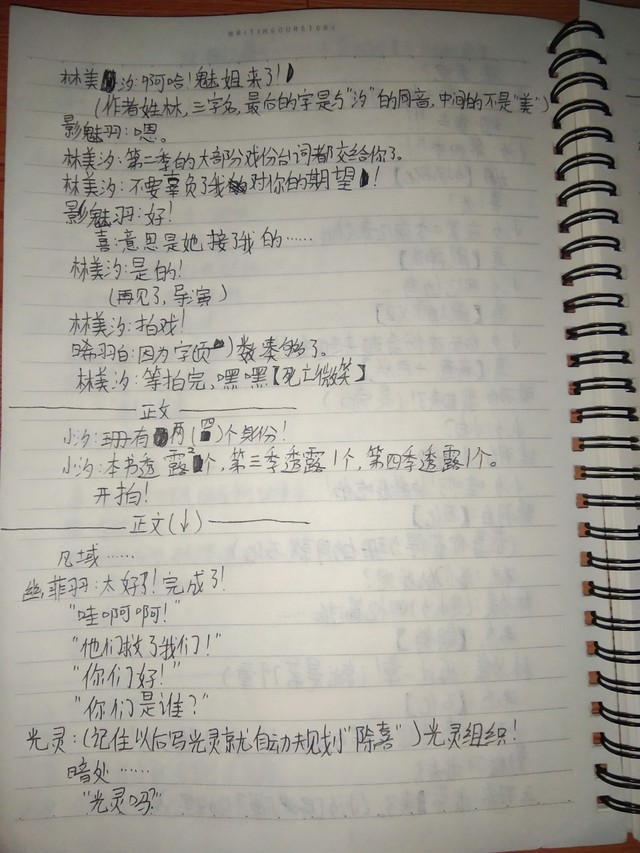 WRITINGOURSTORY
林美汐:啊哈!魅姐来了!
(作者姓林,三字名,最后的字是与"汐"的同音,中间的不是"美")
影魅羽:嗯。
林美汐:第二季的大部分戏份台词都交给你了。
林美汐:不要辜负了我对你的期望!
影魅羽:好!
喜:意思是她接了我的……
林美汐:是的!
(再见了,导演)
林美汐:拍戏!
晞羽白:因为字页)数凑够了。
林美汐:等拍完,嘿嘿【死亡微笑】
正文
小汐:珊有两(四)个身份!
小汐:本书透露2个,第三季透露1个,第四季透露1个。
开拍!
正文(↓)
凡域……
幽菲羽:太好了!完成了!
"哇啊啊!"
"他们救了我们!"
"你们好!"
"你们是谁?"
光灵:(记住以后写光灵就自动规划"除喜")光灵组织!
暗处……
"光灵吗?"